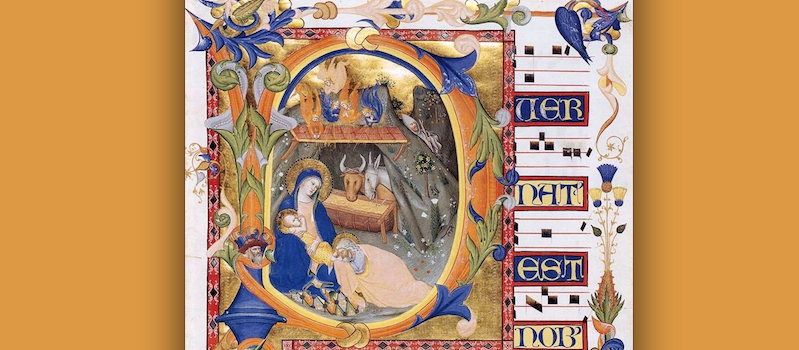 PUER
NAT'
EST
NOB'